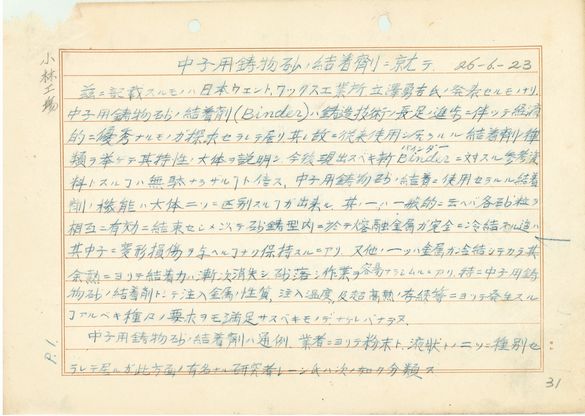 小林工場
中子用鋳物砂ノ結着剤ニ就テ 26-6-23
茲ニ記載スルモノハ日本ウェントワックス工業所立澤勇吉氏ノ発表セルモノナリ
中子用鋳物砂ノ結着剤(Binder)ハ鋳造技術ノ長足ノ進歩ニ伴ッテ経済
的ニ優秀ナルモノガ探求セラレテ居リ其ノ故ニ従来使用シ来ラルル結着剤ノ種
類ヲ挙ゲテ其特性ノ大体ヲ説明シ今後現出スベキ新Binderニ対スル参考資
バインダー
料トスルコトハ無駄ナラザルコトト信ズ、中子用鋳物砂ノ結着ニ使用セラルル結着
剤ノ機能ハ大体二ツニ区別スルコトガ出来ル、其ノ一ハ一般的ニ云ヘバ各砂粒ヲ
相互ニ有効ニ結束セシメ以テ砂鋳型内ニ於テ熔融金属ガ完全ニ冷結スル迄ハ
其中子ニ変形損傷ヲ与ヘルコトナク保持スルニアリ、又他ノ一ツハ金属ガ冷結シテカラ其
余熱ニヨリテ結着力ハ漸次消失シ砂落シ作業ヲ容易ナラシムルニアリ、特ニ中子用鋳
物砂ノ結着剤トシテ注入金属ノ性質、注入温度、及超高熱ノ有続等ニヨリテ発生スル
コトアルベキ種々ノ要求ヲモ満足サスベキモノデナケレバナラヌ
中子用鋳物砂ノ結着剤ハ通例、業者ニヨリテ粉末ト、液状トノ二ツニ種別セ
ラレテ居ルガ此方面ノ有名ナル研究者レーン氏ハ次ノ如ク分類ス
P.1.
31